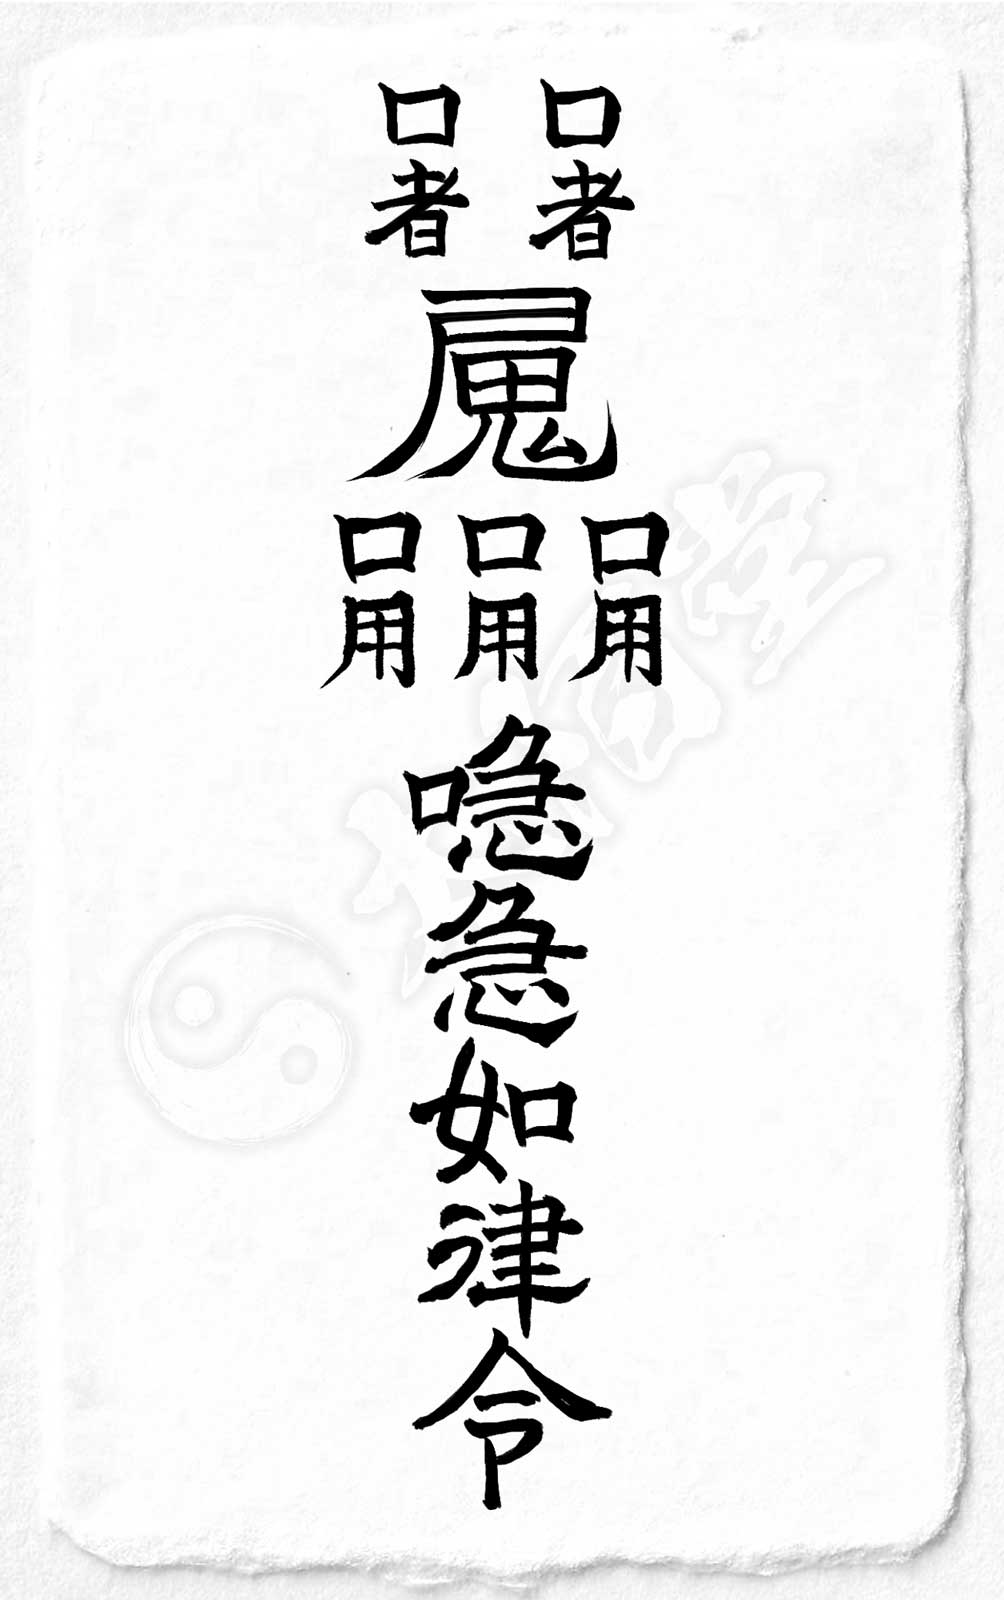 口 口
者 者
尸鬼
口 口 口
用 用 用
喼
急
如
律
令